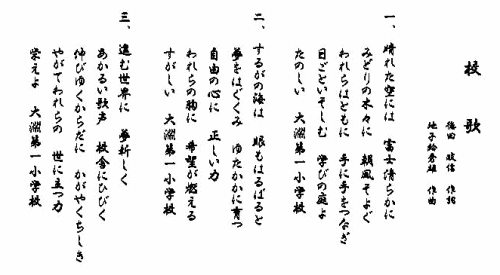 校歌
作詞
作曲
一、晴れた空には 富士清らかに
みどりの木々に 朝風そよぐ
われらはともに 手に手をつなぎ
日ごといそしむ 学びの庭よ
たのしい 大淵第一小学校
二、するがの海は 眼もはるばると
夢をはぐくみ ゆたかに育つ
自由の心に 正しい力
われらの胸に 希望が燃える
すがしい 大淵第一小学校
三、進む世界に 夢新しく
あかるい歌声 校舎にひびく
伸びゆくからだに かがやくちしき
やがてわれらの 世に立つ力
栄えよ 大淵第一小学校